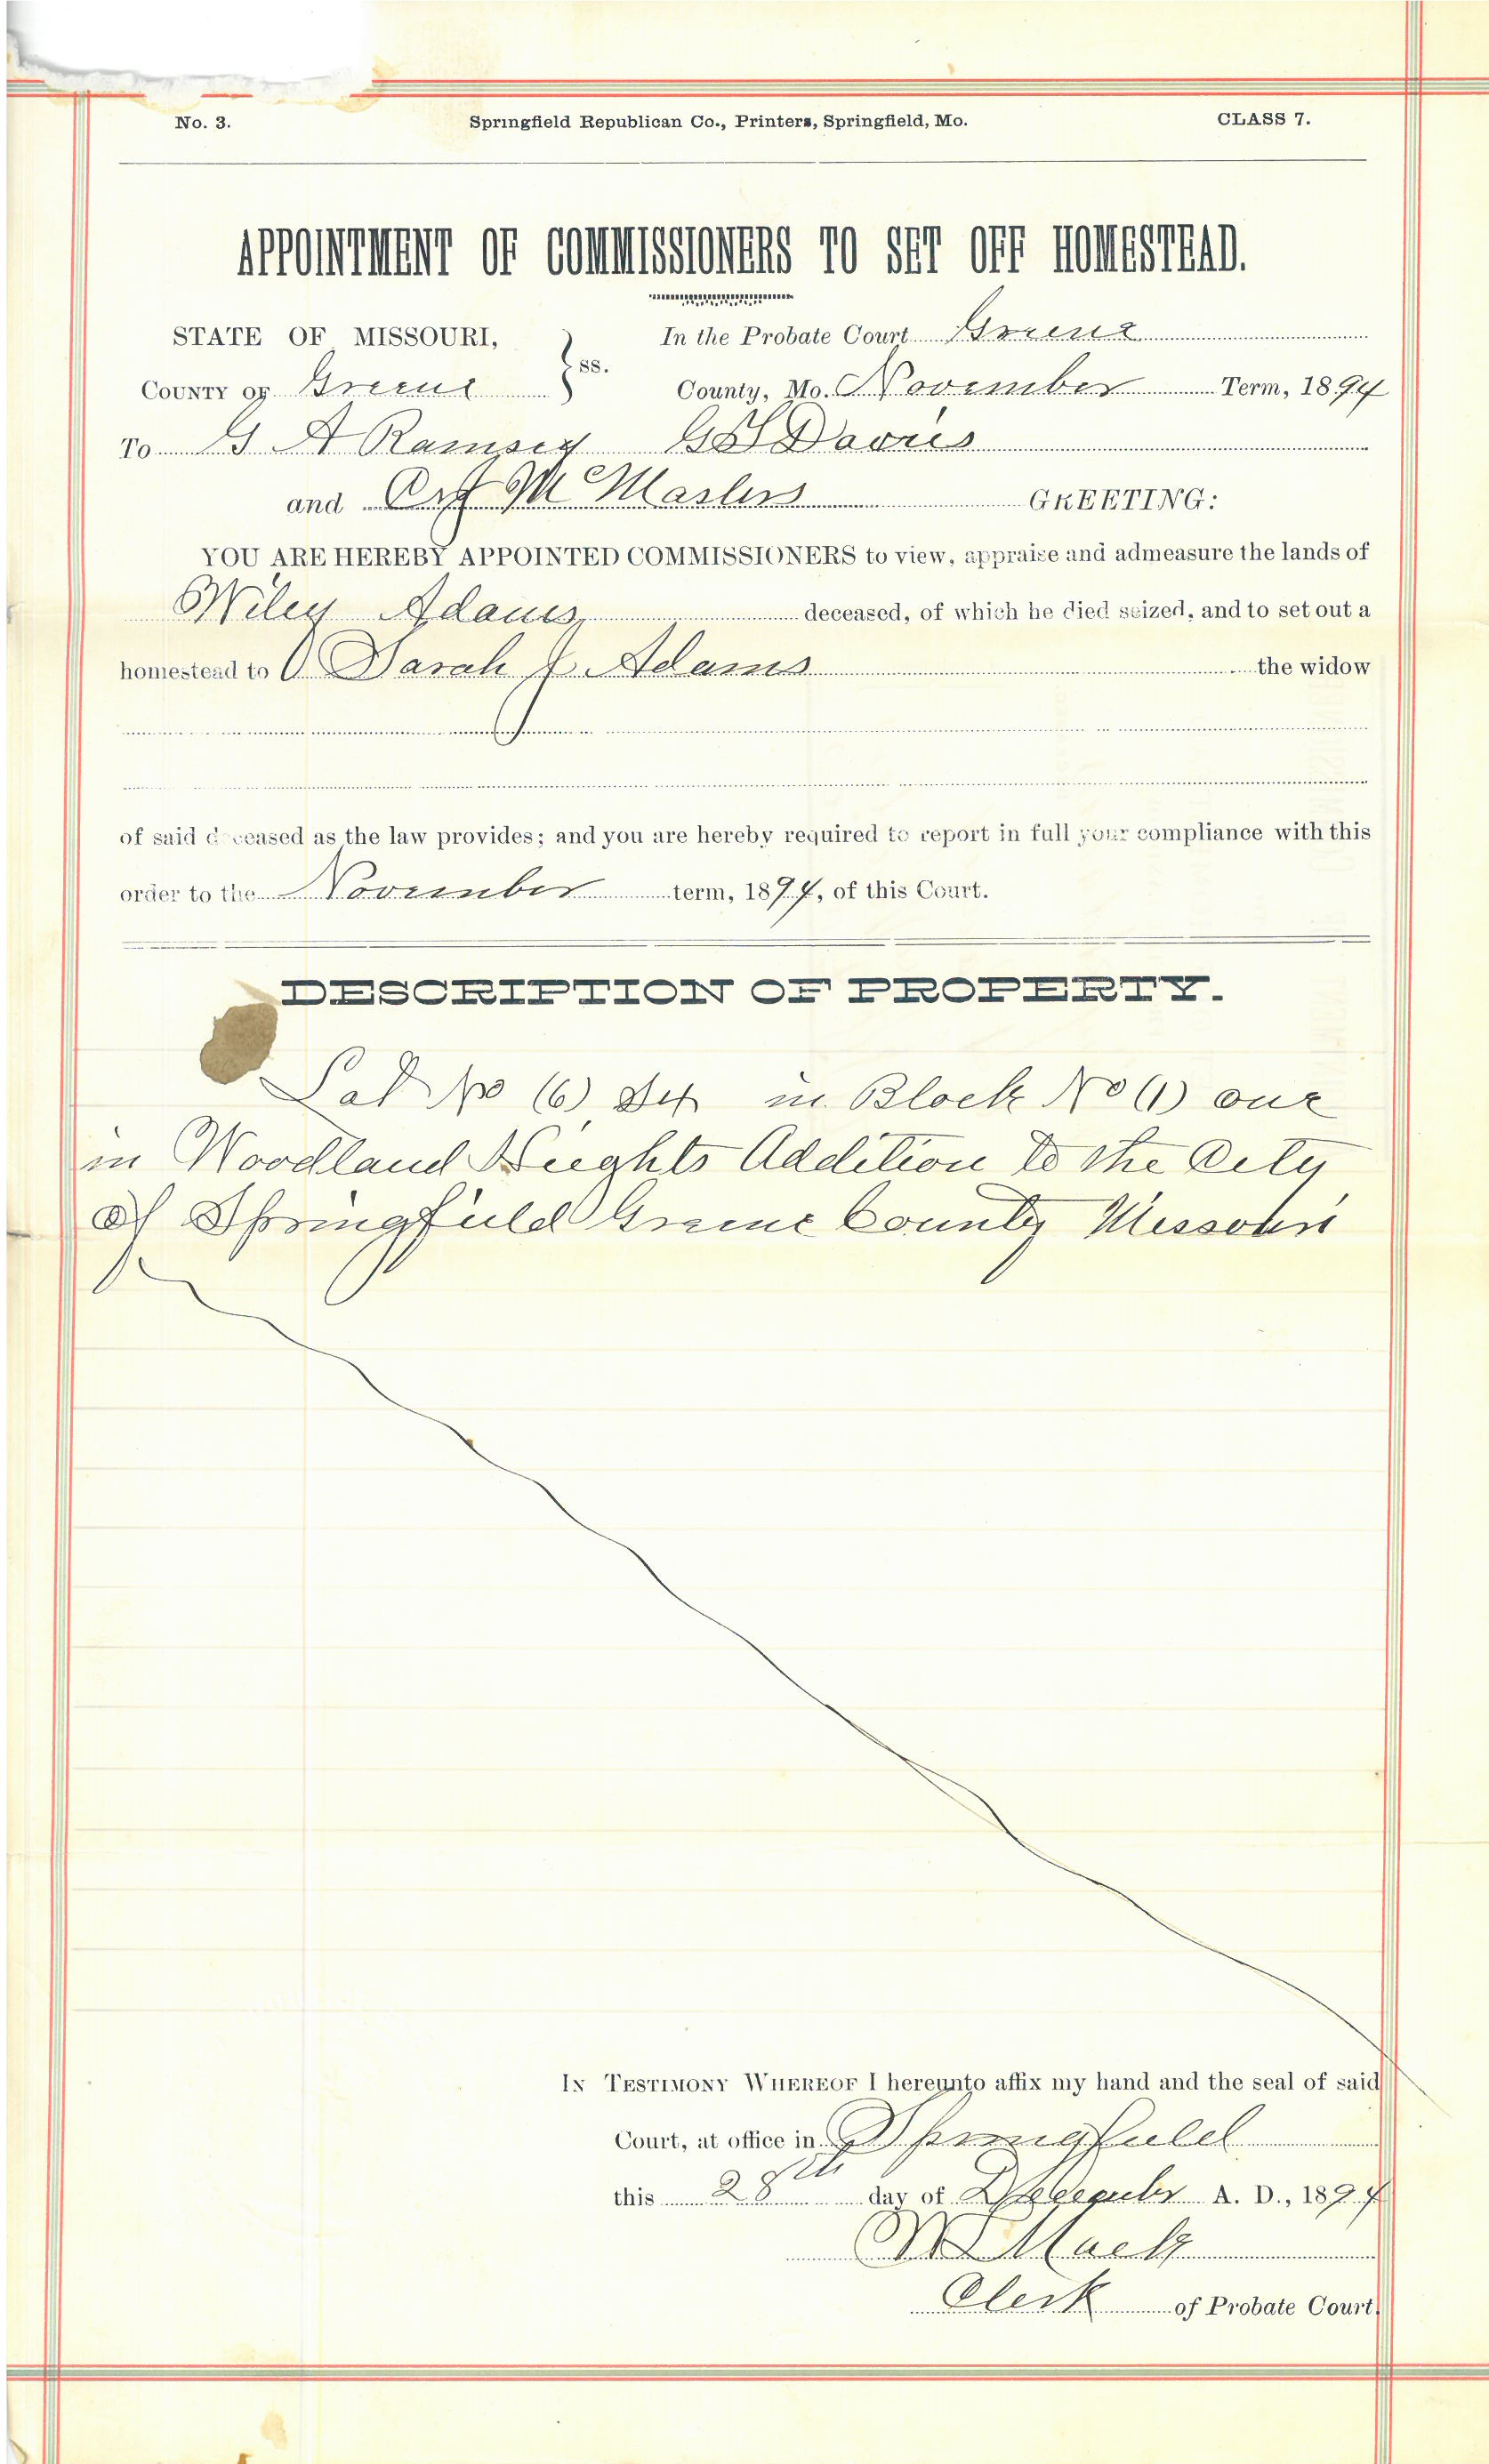 No. 3. Springfield Republican Co., Printers, Springfield, Mo. CLASS 7.
APPOINTMENT OF COMMISSIONERS TO SET OFF HOMESTEAD.
STATE OF MISSOURI, In the Probate Court Greene
ss.
COUNTY OF Greene County, Mo. November Term, 1894
To G A Ramsey G H Davis
and McMasters GREETING:
YOU ARE HEREBY APPOINTED COMMISSIONERS to view, appraise and admeasure the lands of
Wiley Adams deceased, of which he died seized, and to set out a
homestead to Sarah J Adams the widow
of said deceased as the law provides; and you are hereby required to report in full your compliance with this
order to the November term, 1894, of this Court.
DESCRIPTION OF PROPERTY.
Lot No (6) Six in Block No (1) one
in Woodland Heights Addition to the City
of Springfield Greene County Missouri
IN TESTIMONY WHEREOF I hereunto affix my hand and the seal of said
Court, at office in Springfield
this 28th day of December A. D., 1894
Mack
Clerk of Probate Court.